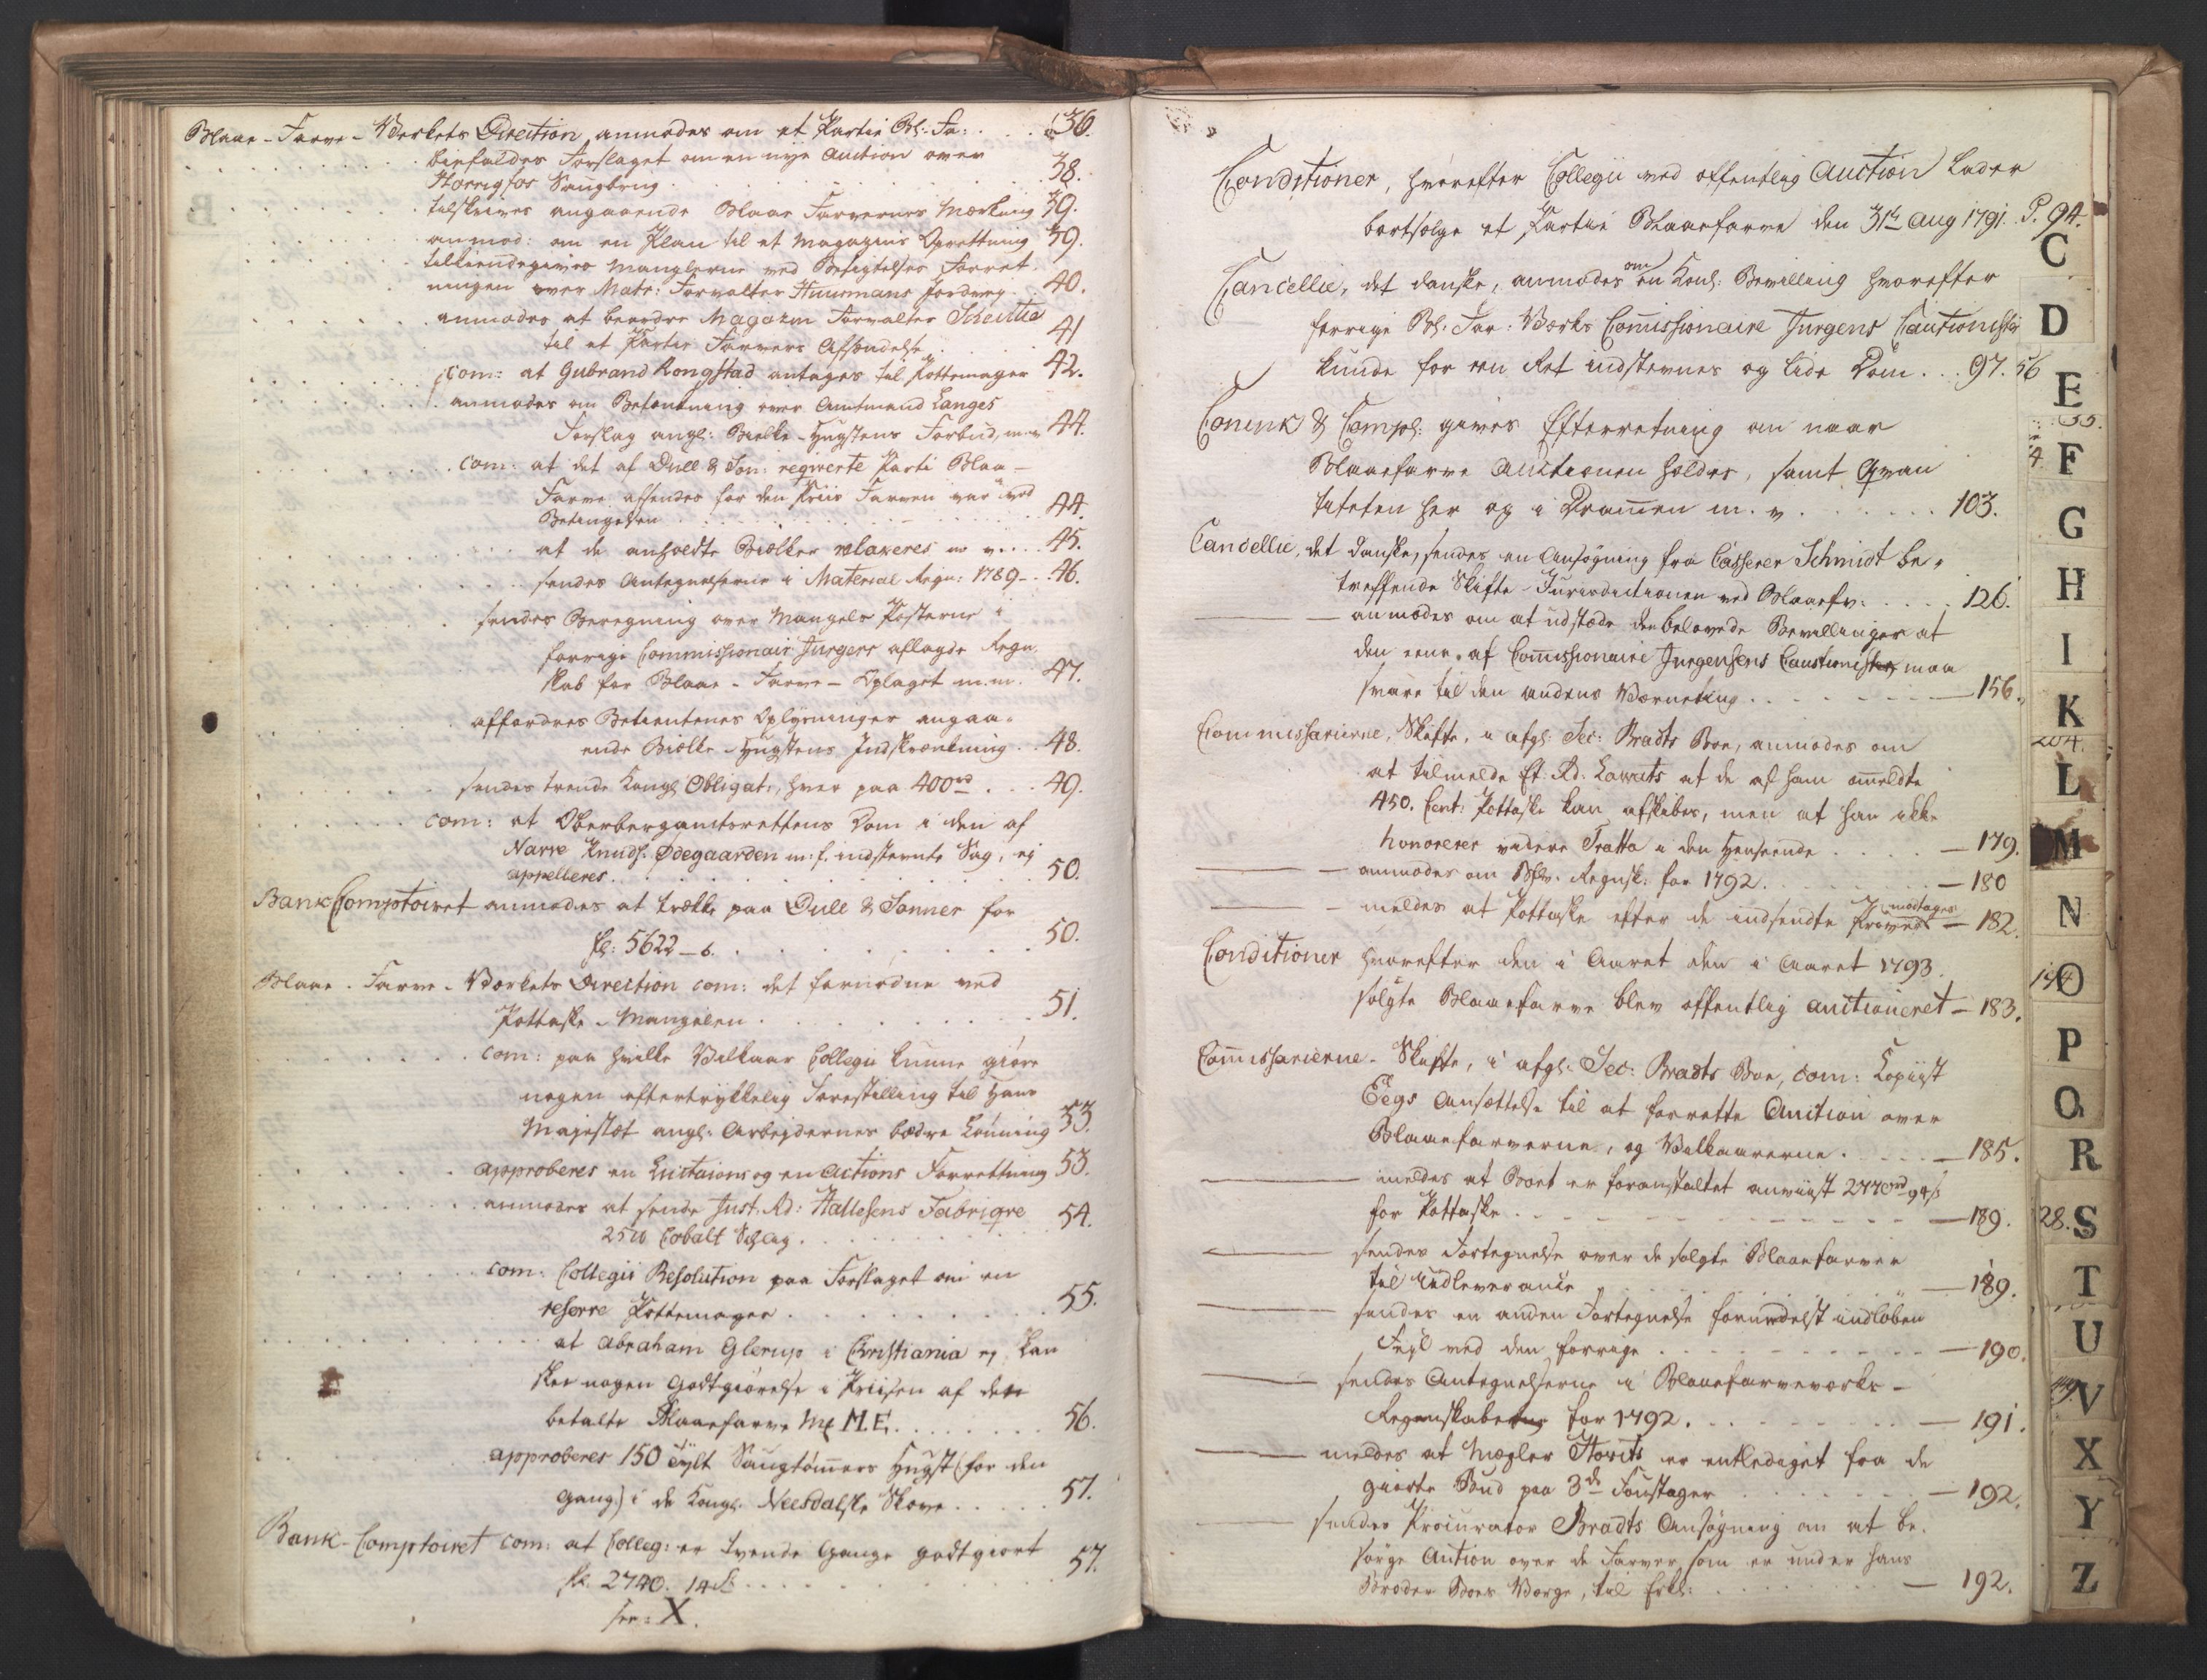 Blaae-Farve-Verkets Direction, anmodes om et Partie Bl: Fa: . . . 36.
biefaldes Forslaget om en nye Auction over
Saugbrug . 38.
tilskrives angaaende Blaae Farvernes Mærkning 39.
anmod: om en Plan til et Magazins Oprettning 39.
tilkiendegives Manglerne ved Besigtelses Forret-
ningen over Mat: Forvalter Huusmans Jordveg . 40.
anmodes at beordre Magazin Forvalter
til et Partie Farvers Afsendelse . 41
com: at Gubrand Rongstad antages til Pottemager 42.
anmodes om Betænkning over Amtmand Langes
Forslag angl: Bielke-Hugstens Forbud, m. v. 44.
com: at det af Dull & Søn: reqvirerte Parti Blaa-
Farve afsendes for den Priis Farven var ved
Betingelsen . 44.
at de anholdte Bielker relaxeres m v. . . . 45.
sendes Antegnelserne i Material Regn: 1789 - . . 46.
sendes Beregning over Mangels Posterne i
forrige Commissionair Jurgens aflagde Regn-
skab for Blaae-Farve-Oplaget m. m. 47.
affordres Betientenes Oplysninger angaa-
ende Bielke-Hugstens Indskrænkning . . 48.
sendes trende Kongl Obligat:, hver paa 400 rd . . . 49.
com: at Oberbergamtsrettens Dom i den af
Narve Knuds. Ødegaarden m: f. indstevnte Sag, ej
appelleres . 50.
Bank Comptoiret anmodes at trække paa Dull & Sønner for
5622 - 6. . 50.
Blaae-Farve-Værkets Direction com: det fornødne ved
Pottaske-Mangelen . 51.
com: paa hvilke Vilkaar Collegii kunne giøre
nogen eftertrykkelig Forestilling til Hans
Majestæt angl: Arbejdernes bedre Lønning 53.
approberes en Licitations og en Auctions Forrettning 53.
anmodes at sende Just. Rd: Hallesens Fabriqve
25 ℔ Cobalt . 54.
com: Collegii Resolution paa Forslaget om en
reserve Pottemager . 55.
at Abraham Glerup i Christiania ej kan
skee nogen Godtgiørelse i Priisen af den
betalte Blaaefarve M.E. . 56.
approberes 150 Tylt Saugtømmers Hugst (for den
Gang) i de Kongl. Skove . . . . . 57.
Bank-Comptoiret com: at Colleg: er tvende Gange godtgiort
2740. 14 ß . . . 57.
see: X.
Conditioner, hvorefter Collegii ved offentlig Auction lader
bortsælge et Partie Blaaefarve den 31te Aug 1791. P. 94.
Cancellie, det danske, anmodes om en Konl: Bevilling hvorefter
forrige Bl. Far: Værks Commissionaire Jurgens Cautionister
kunde for een Ret indstevnes og lide Dom . . . 97. 56
Conink & Comp: gives Efterretning om naar
Blaaefarve Auctionen holdes, samt Qvan
titeten her og i Drammen m. v. . . . . . . 103.
Cancellie, det danske, sendes en Ansøgning fra Casserer Schmidt be-
treffende Skifte-Jurisdictionen ved Blaaefv: . . . . 126.
anmodes om at udstæde den belovede Bevillinger at
den eene af Commissionaire Jurgensens Cautionister maa
svare til den andens Værneting . . . — 156.
Commissarierne, Skifte, i afgl: Sec: Bradts Boe, anmodes om
at tilmelde Et. Rd. at de af ham anmeldte
450. Cent: Pottaske kan afskibes, men at han ikke
honorerer videre Tratta i den Henseende . . . . — 179.
anmodes om Regnsk: for 1792. . . . . — 180
meldes at Pottaske efter de indsendte Prøver modtages — 182.
Conditioner hvorefter den i Aaret den i Aaret 1793.
solgte Blaaefarve blev offentlig auctioneret — 183.
Commissarierne-Skifte, i afgl: Sec: Bradts Boe, com: Copiist
Eegs Ansættelse til at forrette Auction over
Blaaefarverne, og Vilkaarerne . . . . — 185.
meldes at Boet er foranstaltet anviist 2770 rd 94 ß
for Pottaske . . . — 189.
sendes Fortegnelse over de solgte Blaaefarver
til Udleverance — 189.
sendes en anden Fortegnelse formedelst indløben
Fejl ved den forrige . . . — 190.
sendes Antegnelserne i Blaaefarveværks-
Regnskaberne for 1792. . . . — 191.
meldes at Mægler Horits er entlediget fra de
giorte Bud paa 3de Foustager — 192.
sendes Procurator Bradts Ansøgning om at be-
sørge Aution over de Farver som er under hans
Broders Boes Værge, til Erkl: . . . — 192.
C
D
E
F
G
H
I
K
L
M
N
O
P
Q
R
S
T
U
V
X
Y
Z